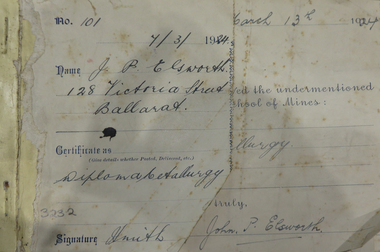 No. 101
March 13th 1924
7/3/1924.
Name J. P. Elsworth
128 Victoria Street
Ballarat.
ed the undermentioned
hool of Mines:
Certificate as
(Give details, whether Posted, Delivered, etc.)
llurgy
Diploma Metallurgy
truly,
3232
Signature
John P. Elsworth